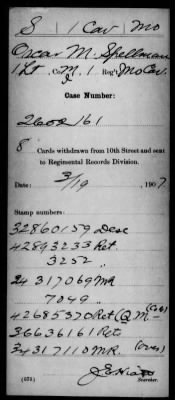 S | 1 Cav | Mo
Oscar M. Spellman
1 Lt, Co. M, 1 Reg't Mo Cav.
Case Number:
2602161
8 Cards withdrawn from 10th Street and sent
to Regimental Records Division.
Date: 3/19, 1907
Stamp numbers:
32860159 Desc
42893233 Ret.
3252 "
24317069 MR
7049 "
42685370 Ret (Q M
36636161 Ret
34317110 MR. (over)
Searcher.